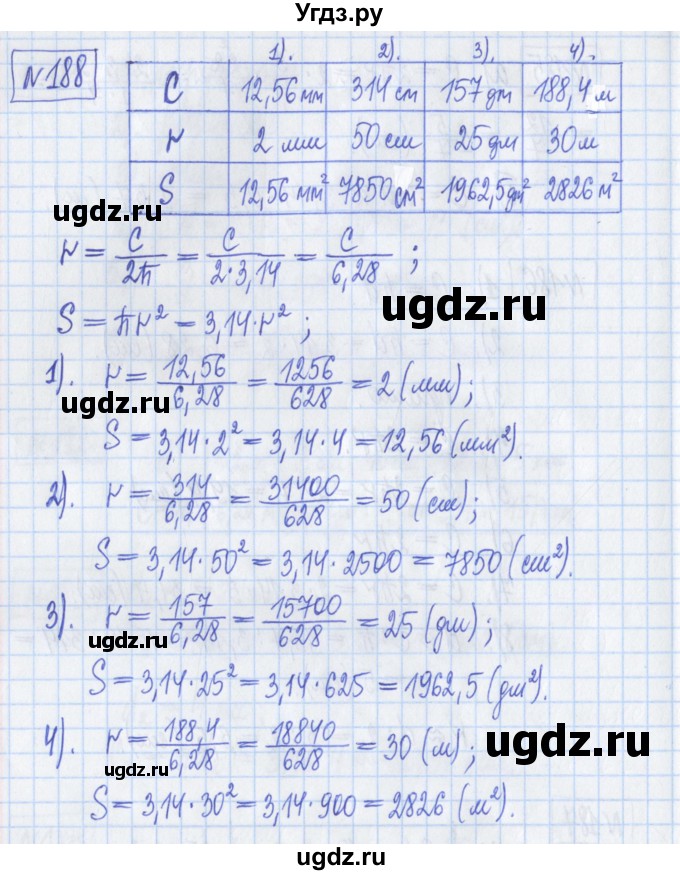 Угдз.ру
№188
1). 2). 3). 4).
C 12,56 мм 314 см 157 дм 188,4 м
r 2 мм 50 см 25 дм 30 м
S 12,56 мм² 7850 см² 1962,5 дм² 2826 м²
ugdz.ru
r = C/2π = C/2·3,14 = C/6,28 ;
ugdz.ru
S = πr² = 3,14·r² ;
1). r = 12,56/6,28 = 1256/628 = 2 (мм);
ugdz.ru
S = 3,14·2² = 3,14·4 = 12,56 (мм²).
2). r = 314/6,28 = 31400/628 = 50 (см);
ugdz.ru
S = 3,14·50² = 3,14·2500 = 7850 (см²).
3). r = 157/6,28 = 15700/628 = 25 (дм);
ugdz.ru
S = 3,14·25² = 3,14·625 = 1962,5 (дм²).
4). r = 188,4/6,28 = 18840/628 = 30 (м);
ugdz.ru
ugdz.ru
S = 3,14·30² = 3,14·900 = 2826 (м²).
ugdz.ru